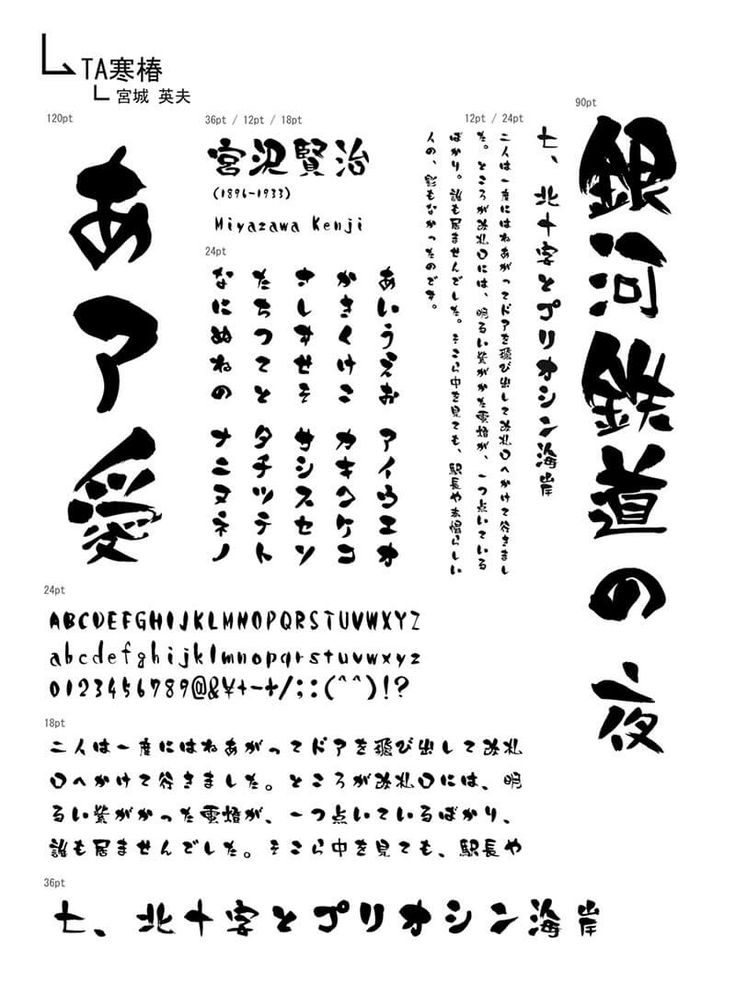 TA寒椿
宮城 英夫
120pt
あア愛
36pt / 12pt / 18pt
宮沢賢治
(1896-1933)
Miyazawa Kenji
24pt
あいうえお アイウエオ
かきくけこ カキクケコ
さしすせそ サシスセソ
たちつてと タチツテト
なにぬねの ナニヌネノ
12pt / 24pt
七、北十字とプリオシン海岸
二人は一度にはねあがってドアを飛び出して改札口へかけて行きまし
た。ところが改札口には、明るい紫がかった電燈が、一つ点いている
ばかり、誰も居ませんでした。そこら中を見ても、駅長や赤帽らしい
人の、影もなかったのです。
90pt
銀河鉄道の夜
24pt
ABCDEFGHIJKLMNOPQRSTUVWXYZ
abcdefghijklmnopqrstuvwxyz
0123456789@&¥+-+/;:(^^)!?
18pt
二人は一度にはねあがってドアを飛び出して改札
口へかけて行きました。ところが改札口には、明
るい紫がかった電燈が、一つ点いているばかり、
誰も居ませんでした。そこら中を見ても、駅長や
36pt
七、北十字とプリオシン海岸